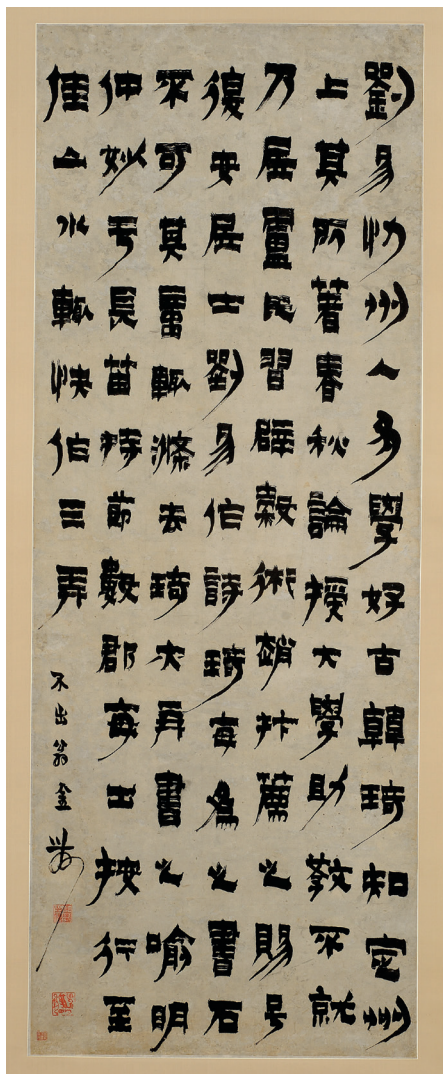 劉易忻州人多學好古韓琦知定州
上其所著春秋論授大學助教不就
乃居盧氏習辟穀術趙抃薦之賜号
復安居士劉易作詩琦每爲之書石
不可其輒滌去琦亦再書之喻明
仲妙亏長笛持節數郡每出按行至
佳山水輒快作三弄
不出翁金農